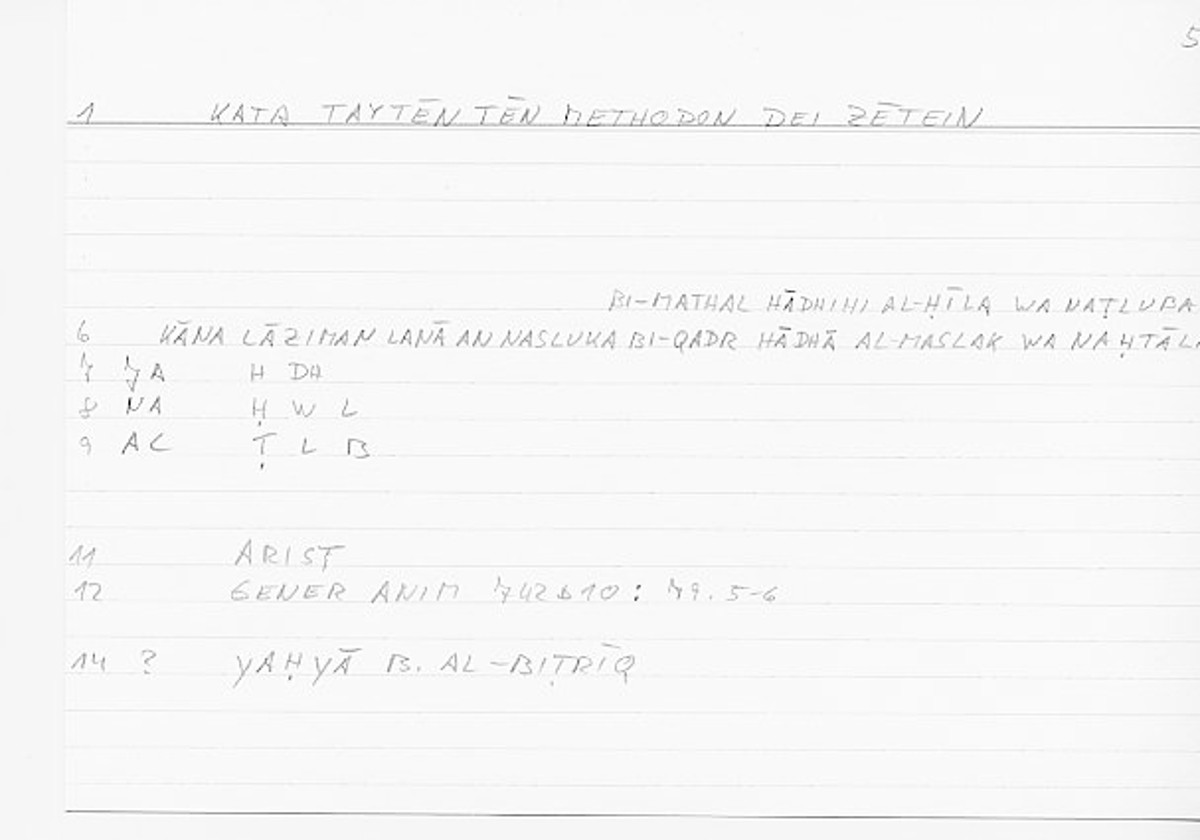 5
1 KATA TAYTĒN TĒN METHODON DEI ZĒTEIN
BI-MATHAL HĀDHIHI AL-ḤĪLA WA NAṬLUBA
6 KĀNA LĀZIMAN LANĀ AN NASLUKA BI-QADR HĀDHĀ AL-MASLAK WA NAḤTĀL
7 7A H DH
8 NA Ḥ W L
9 AC Ṭ L B
11 ARIST
12 GENER ANIM 742b10: 79.5-6
14 ? YAḤYĀ B. AL-BIṬRĪQ